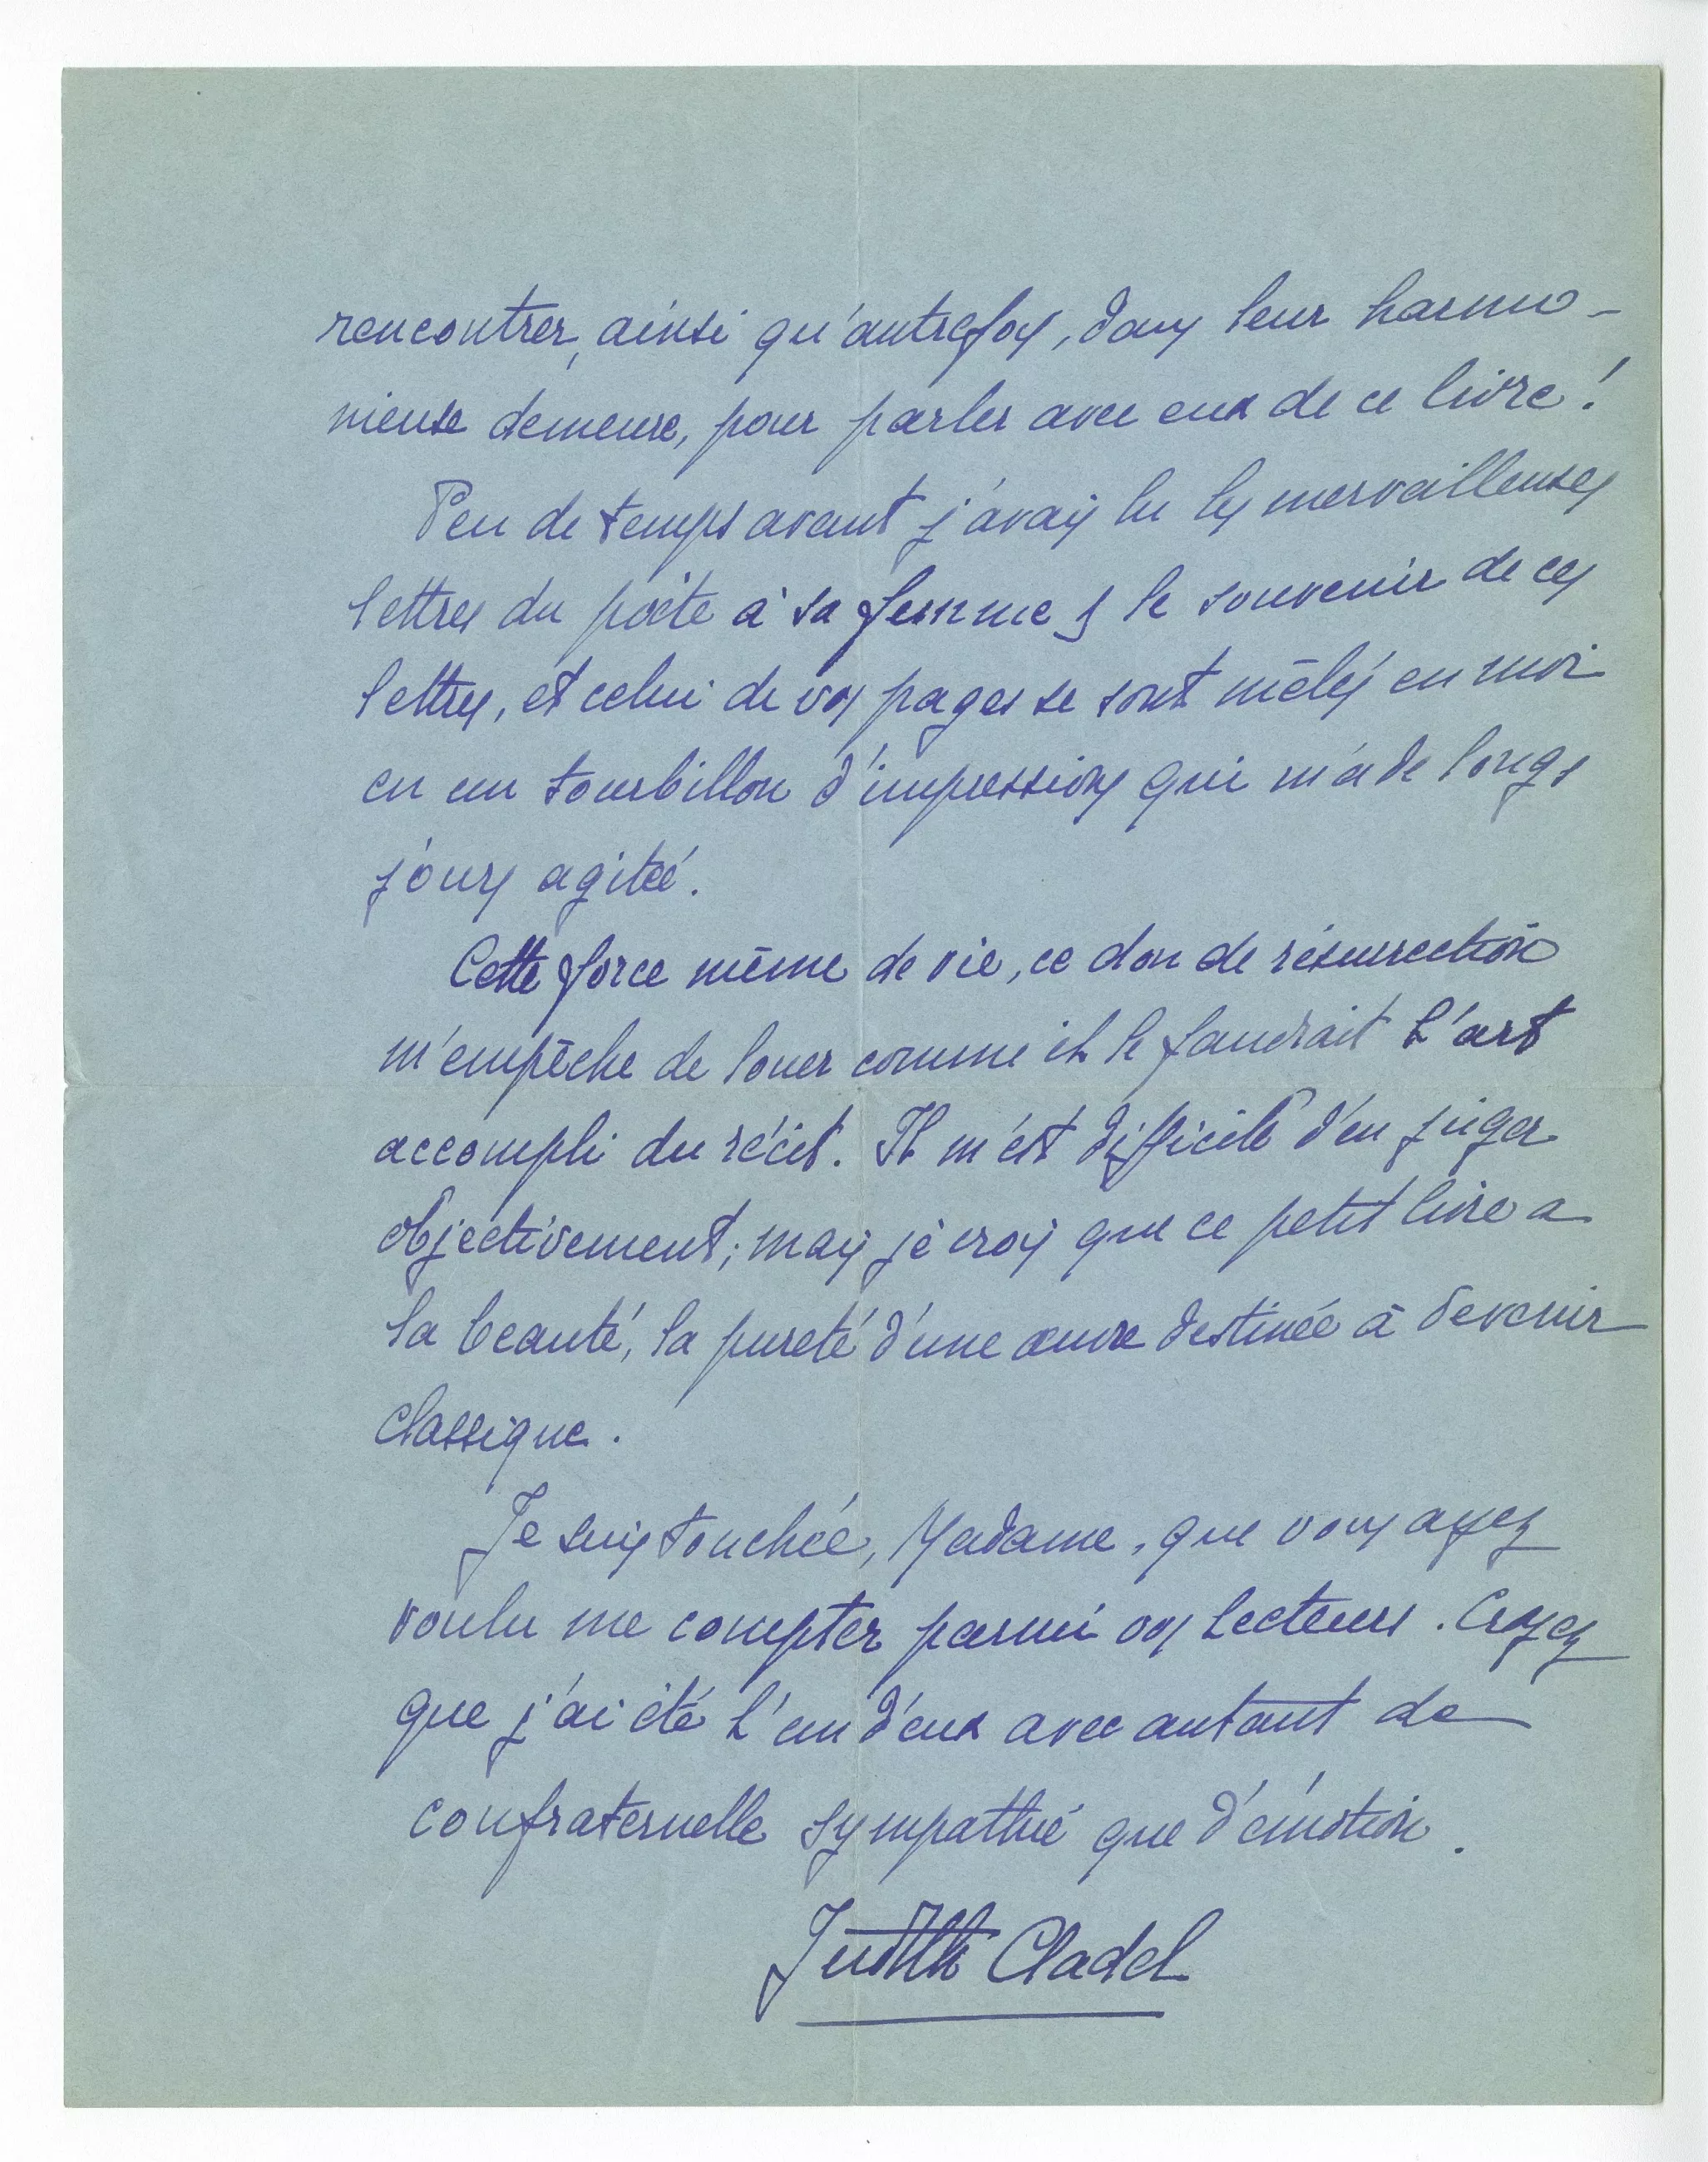 rencontrer, ainsi qu'autrefois, dans leur harmo-
nieuse demeure, pour parler avec eux de ce livre !
Peu de temps avant j'avais lu les merveilleuses
lettres du poète à sa femme ; le souvenir de ces
lettres, et celui de vos pages se sont mêlés en moi
en un tourbillon d'impressions qui m'a de longs
jours agitée.
Cette force même de vie, ce don de résurrection
m'empêche de louer comme il le faudrait l'art
accompli du récit. Il m'est difficile d'en juger
objectivement ; mais je crois que ce petit livre a
la beauté, la pureté d'une œuvre destinée à devenir
classique.
Je suis touchée, Madame, que vous ayez
voulu me compter parmi vos lecteurs. Croyez
que j'ai été l'un d'eux avec autant de
confraternelle sympathie que d'émotion.
Judith Cladel